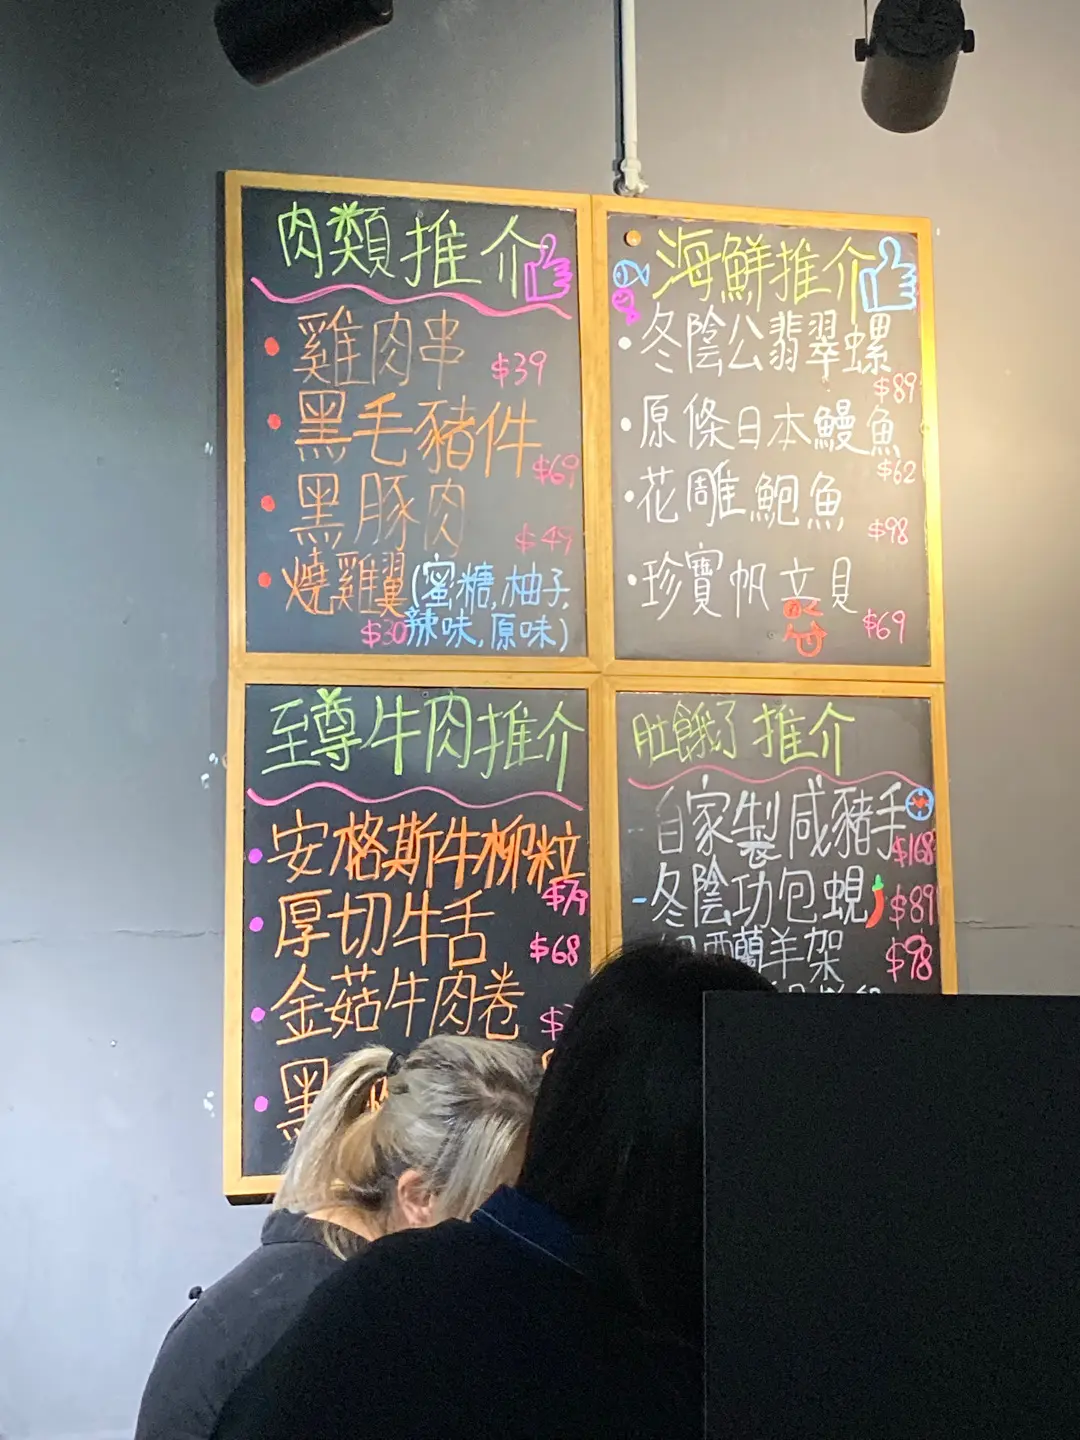 肉類推介
雞肉串 $39
黑毛豬件 $69
黑豚肉 $49
燒雞翼(蜜糖,柚子,
$30辣味,原味)
海鮮推介
冬陰公翡翠螺
$89
原條日本鰻魚
$62
花雕鮑魚
$98
珍寶帆立貝
$69
至尊牛肉推介
安格斯牛柳粒
$79
厚切牛舌 $68
金菇牛肉卷
黑
肚餓了推介
自家製咸豬手 $168
冬陰功包蜆 $89
西蘭羊架 $98